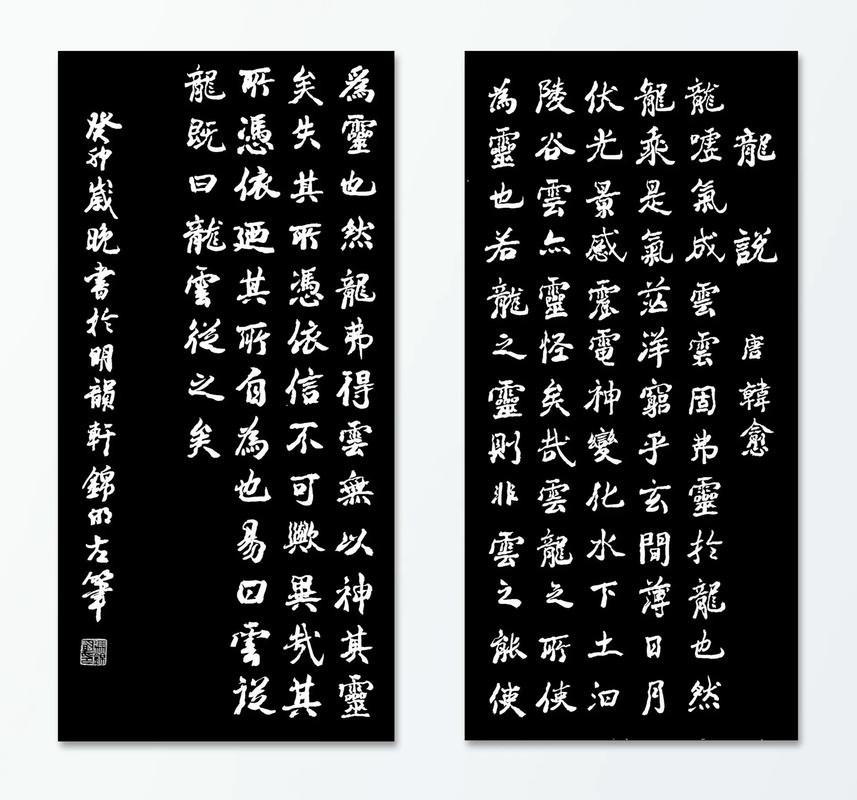 龍說 唐韓愈
龍噓氣成雲雲固弗靈於龍也然
龍乘是氣茫洋窮乎玄間薄日月
伏光景感震電神變化水下土汩
陵谷雲亦靈怪矣哉雲龍之所使
為靈也若龍之靈則非雲之能使
爲靈也然龍弗得雲無以神其靈
矣失其所憑依信不可歟異哉其
所憑依廼其所自為也易曰雲從
龍既曰龍雲從之矣
癸卯歲晚書於明韻軒錦明左筆